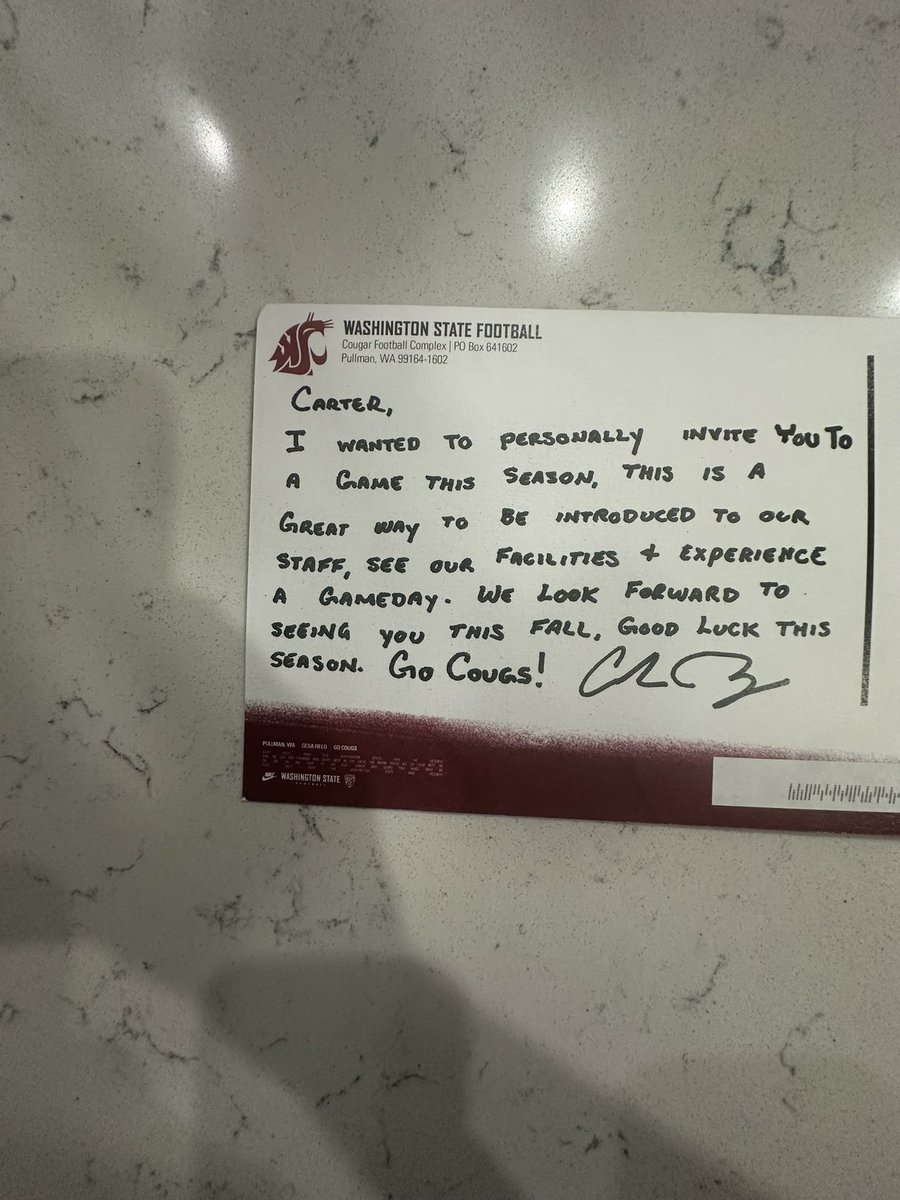 WASHINGTON STATE FOOTBALL
Cougar Football Complex | PO Box 641602
Pullman, WA 99164-1602
CARTER,
I WANTED TO PERSONALLY INVITE YOU TO
A GAME THIS SEASON, THIS IS A
GREAT WAY TO BE INTRODUCED TO OUR
STAFF, SEE OUR FACILITIES + EXPERIENCE
A GAMEDAY. WE LOOK FORWARD TO
SEEING YOU THIS FALL, GOOD LUCK THIS
SEASON. GO COUGS!
PULLMAN, WA GESA FIELD GO COUGS
WASHINGTON STATE
FOOTBALL